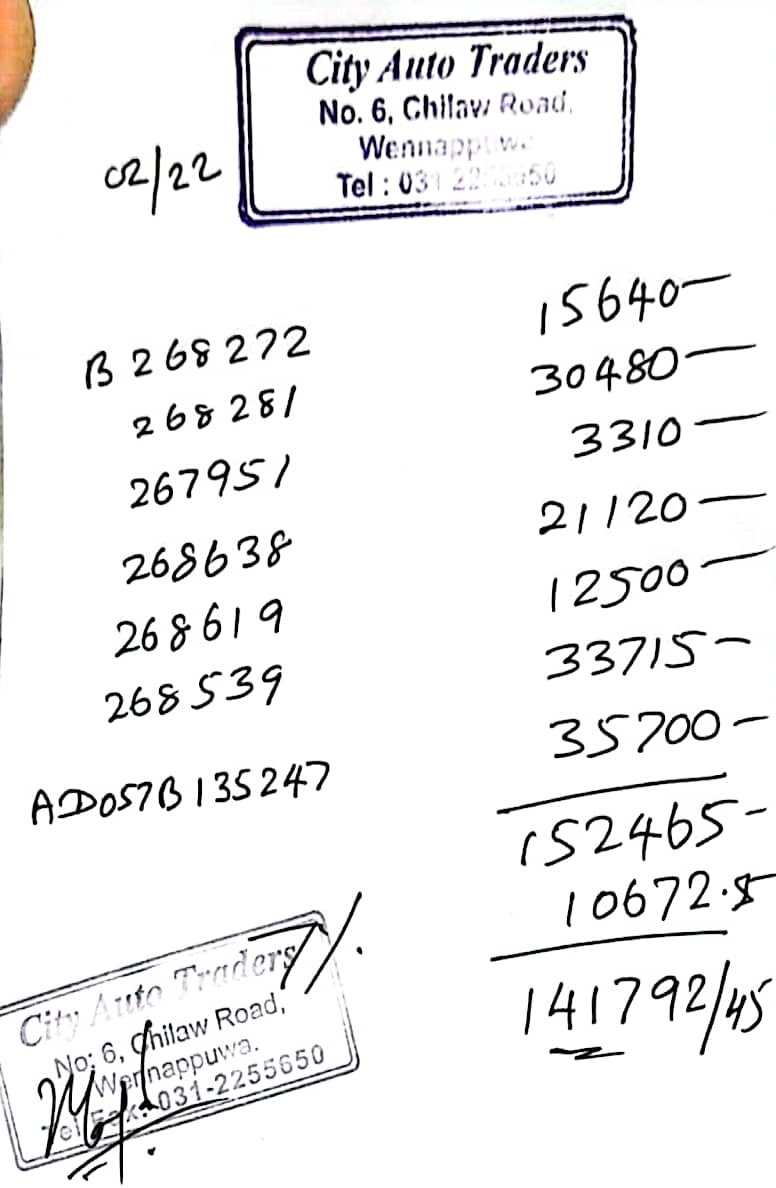 City Auto Traders
No. 6, Chilaw Road,
Wennappuwa
Tel : 031 2255650
02/22
15640-
B 268272 30480-
268281 3310-
267951 21120-
268638 12500-
268619 33715-
268539 35700-
AD057B135247 152465-
10672.5
7%.
141792/45
City Auto Traders
No: 6, Chilaw Road,
Wennappuwa.
Tel/Fax: 031-2255650